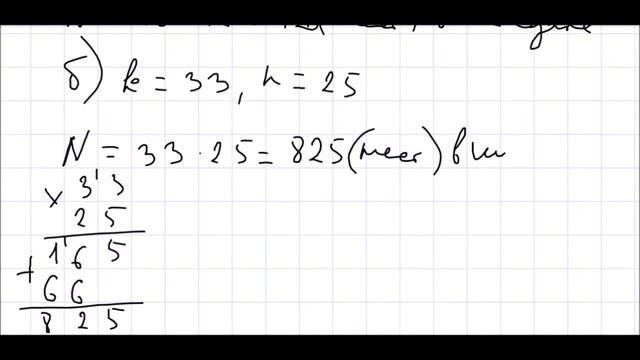 б) k = 33, n = 25
N = 33 · 25 = 825 (мест) в ш
× 33
25
165
+
66
825